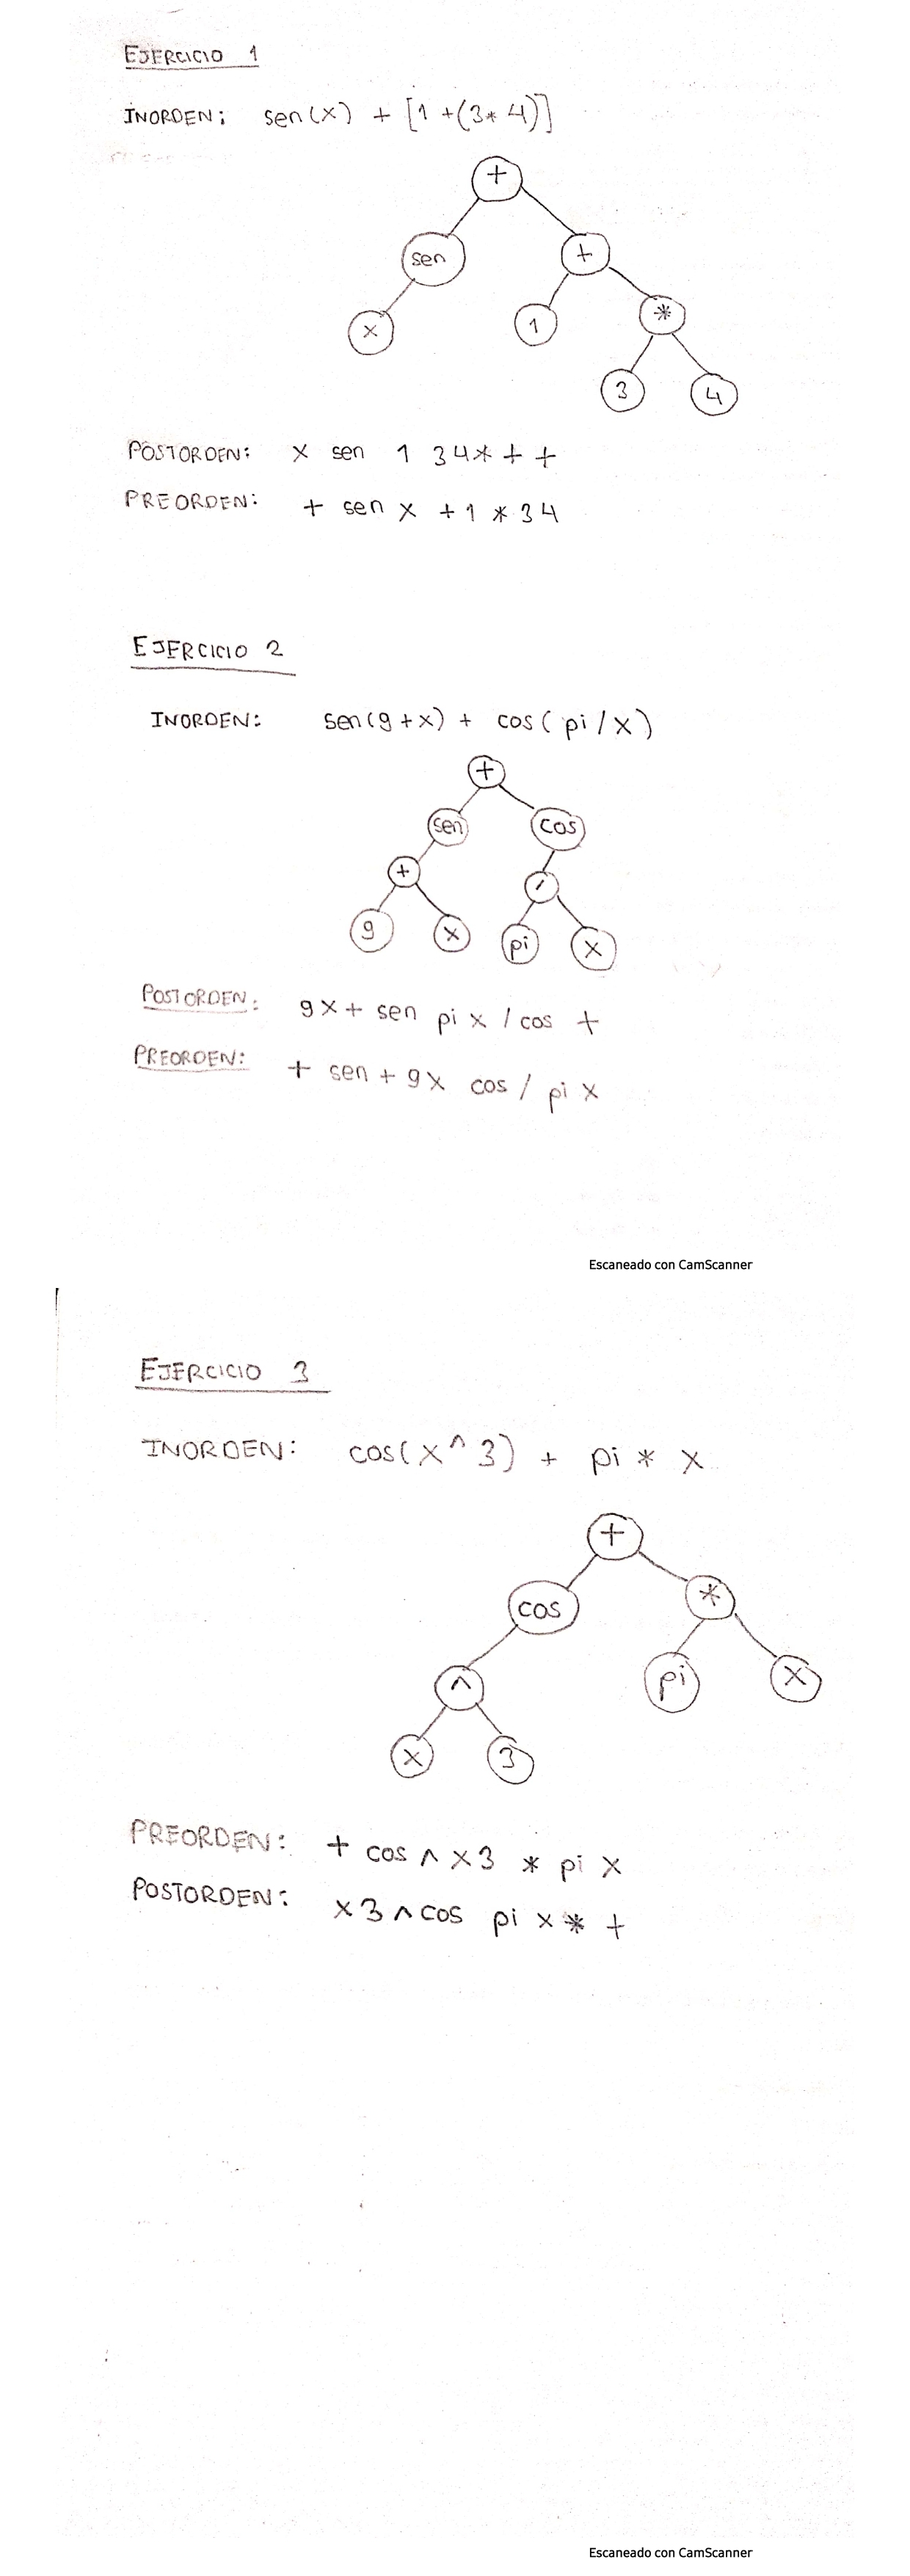 EJERCICIO 1
INORDEN: sen(x) + [1 +(3* 4)]
+
sen +
x 1 *
3 4
POSTORDEN: x sen 1 34* + +
PREORDEN: + sen x +1 * 34
EJERCICIO 2
INORDEN: sen(9+x) + cos( pi/x)
+
sen cos
+ /
9 x pi x
POSTORDEN: 9x+ sen pi x / cos +
PREORDEN: + sen + 9x cos / pi x
Escaneado con CamScanner
EJERCICIO 3
INORDEN: cos(x^3) + pi * x
+
cos *
^ pi x
x 3
PREORDEN: + cos ^ x3 * pi x
POSTORDEN: x3^cos pi x * +
Escaneado con CamScanner